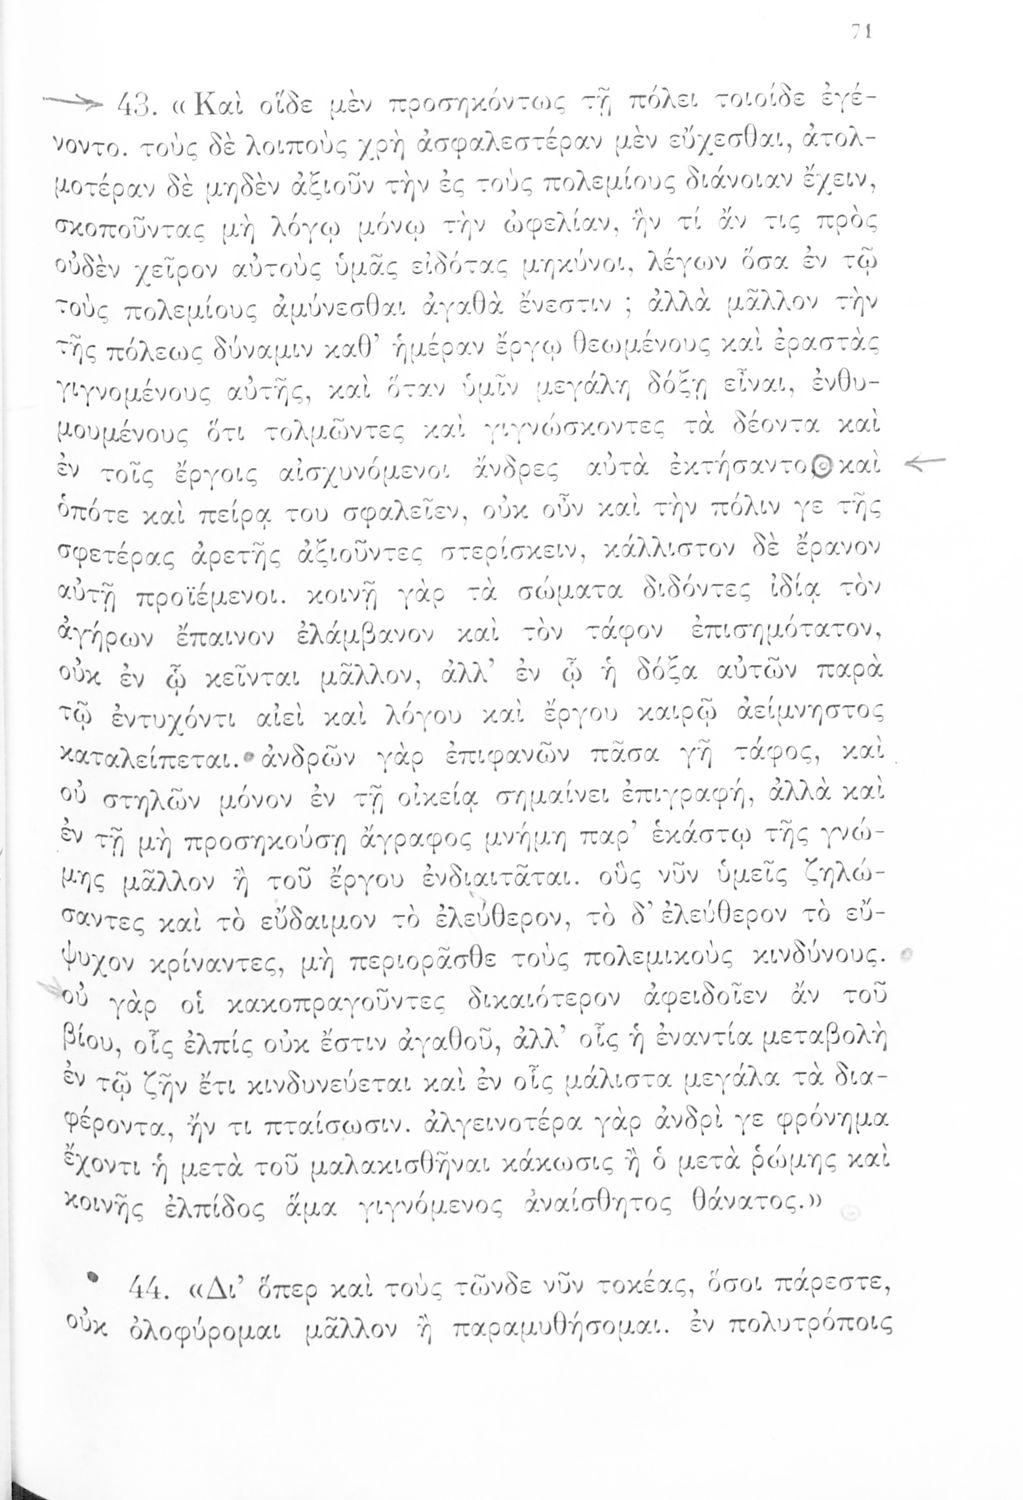 71
43. «Καὶ οἵδε μὲν προσηκόντως τῇ πόλει τοιοίδε ἐγέ-
νοντο. τοὺς δὲ λοιποὺς χρὴ ἀσφαλεστέραν μὲν εὔχεσθαι, ἀτολ-
μοτέραν δὲ μηδὲν ἀξιοῦν τὴν ἐς τοὺς πολεμίους διάνοιαν ἔχειν,
σκοποῦντας μὴ λόγῳ μόνῳ τὴν ὠφελίαν, ἣν τί ἄν τις πρὸς
οὐδὲν χεῖρον αὐτοὺς ὑμᾶς εἰδότας μηκύνοι, λέγων ὅσα ἐν τῷ
τοὺς πολεμίους ἀμύνεσθαι ἀγαθὰ ἔνεστιν ; ἀλλὰ μᾶλλον τὴν
τῆς πόλεως δύναμιν καθ’ ἡμέραν ἔργῳ θεωμένους καὶ ἐραστὰς
γιγνομένους αὐτῆς, καὶ ὅταν ὑμῖν μεγάλη δόξῃ εἶναι, ἐνθυ-
μουμένους ὅτι τολμῶντες καὶ γιγνώσκοντες τὰ δέοντα καὶ
ἐν τοῖς ἔργοις αἰσχυνόμενοι ἄνδρες αὐτὰ ἐκτήσαντο, καὶ
ὁπότε καὶ πείρᾳ του σφαλεῖεν, οὐκ οὖν καὶ τὴν πόλιν γε τῆς
σφετέρας ἀρετῆς ἀξιοῦντες στερίσκειν, κάλλιστον δὲ ἔρανον
αὐτῇ προϊέμενοι. κοινῇ γὰρ τὰ σώματα διδόντες ἰδίᾳ τὸν
ἀγήρων ἔπαινον ἐλάμβανον καὶ τὸν τάφον ἐπισημότατον,
οὐκ ἐν ᾧ κεῖνται μᾶλλον, ἀλλ’ ἐν ᾧ ἡ δόξα αὐτῶν παρὰ
τῷ ἐντυχόντι αἰεὶ καὶ λόγου καὶ ἔργου καιρῷ ἀείμνηστος
καταλείπεται. ἀνδρῶν γὰρ ἐπιφανῶν πᾶσα γῆ τάφος, καὶ
οὐ στηλῶν μόνον ἐν τῇ οἰκείᾳ σημαίνει ἐπιγραφή, ἀλλὰ καὶ
ἐν τῇ μὴ προσηκούσῃ ἄγραφος μνήμη παρ’ ἑκάστῳ τῆς γνώ-
μης μᾶλλον ἢ τοῦ ἔργου ἐνδιαιτᾶται. οὓς νῦν ὑμεῖς ζηλώ-
σαντες καὶ τὸ εὔδαιμον τὸ ἐλεύθερον, τὸ δ’ ἐλεύθερον τὸ εὔ-
ψυχον κρίναντες, μὴ περιορᾶσθε τοὺς πολεμικοὺς κινδύνους.
οὐ γὰρ οἱ κακοπραγοῦντες δικαιότερον ἀφειδοῖεν ἂν τοῦ
βίου, οἷς ἐλπίς οὐκ ἔστιν ἀγαθοῦ, ἀλλ’ οἷς ἡ ἐναντία μεταβολὴ
ἐν τῷ ζῆν ἔτι κινδυνεύεται καὶ ἐν οἷς μάλιστα μεγάλα τὰ δια-
φέροντα, ἤν τι πταίσωσιν. ἀλγεινοτέρα γὰρ ἀνδρὶ γε φρόνημα
ἔχοντι ἡ μετὰ τοῦ μαλακισθῆναι κάκωσις ἢ ὁ μετὰ ῥώμης καὶ
κοινῆς ἐλπίδος ἅμα γιγνόμενος ἀναίσθητος θάνατος.»
44. «Δι’ ὅπερ καὶ τοὺς τῶνδε νῦν τοκέας, ὅσοι πάρεστε,
οὐκ ὀλοφύρομαι μᾶλλον ἢ παραμυθήσομαι. ἐν πολυτρόποις